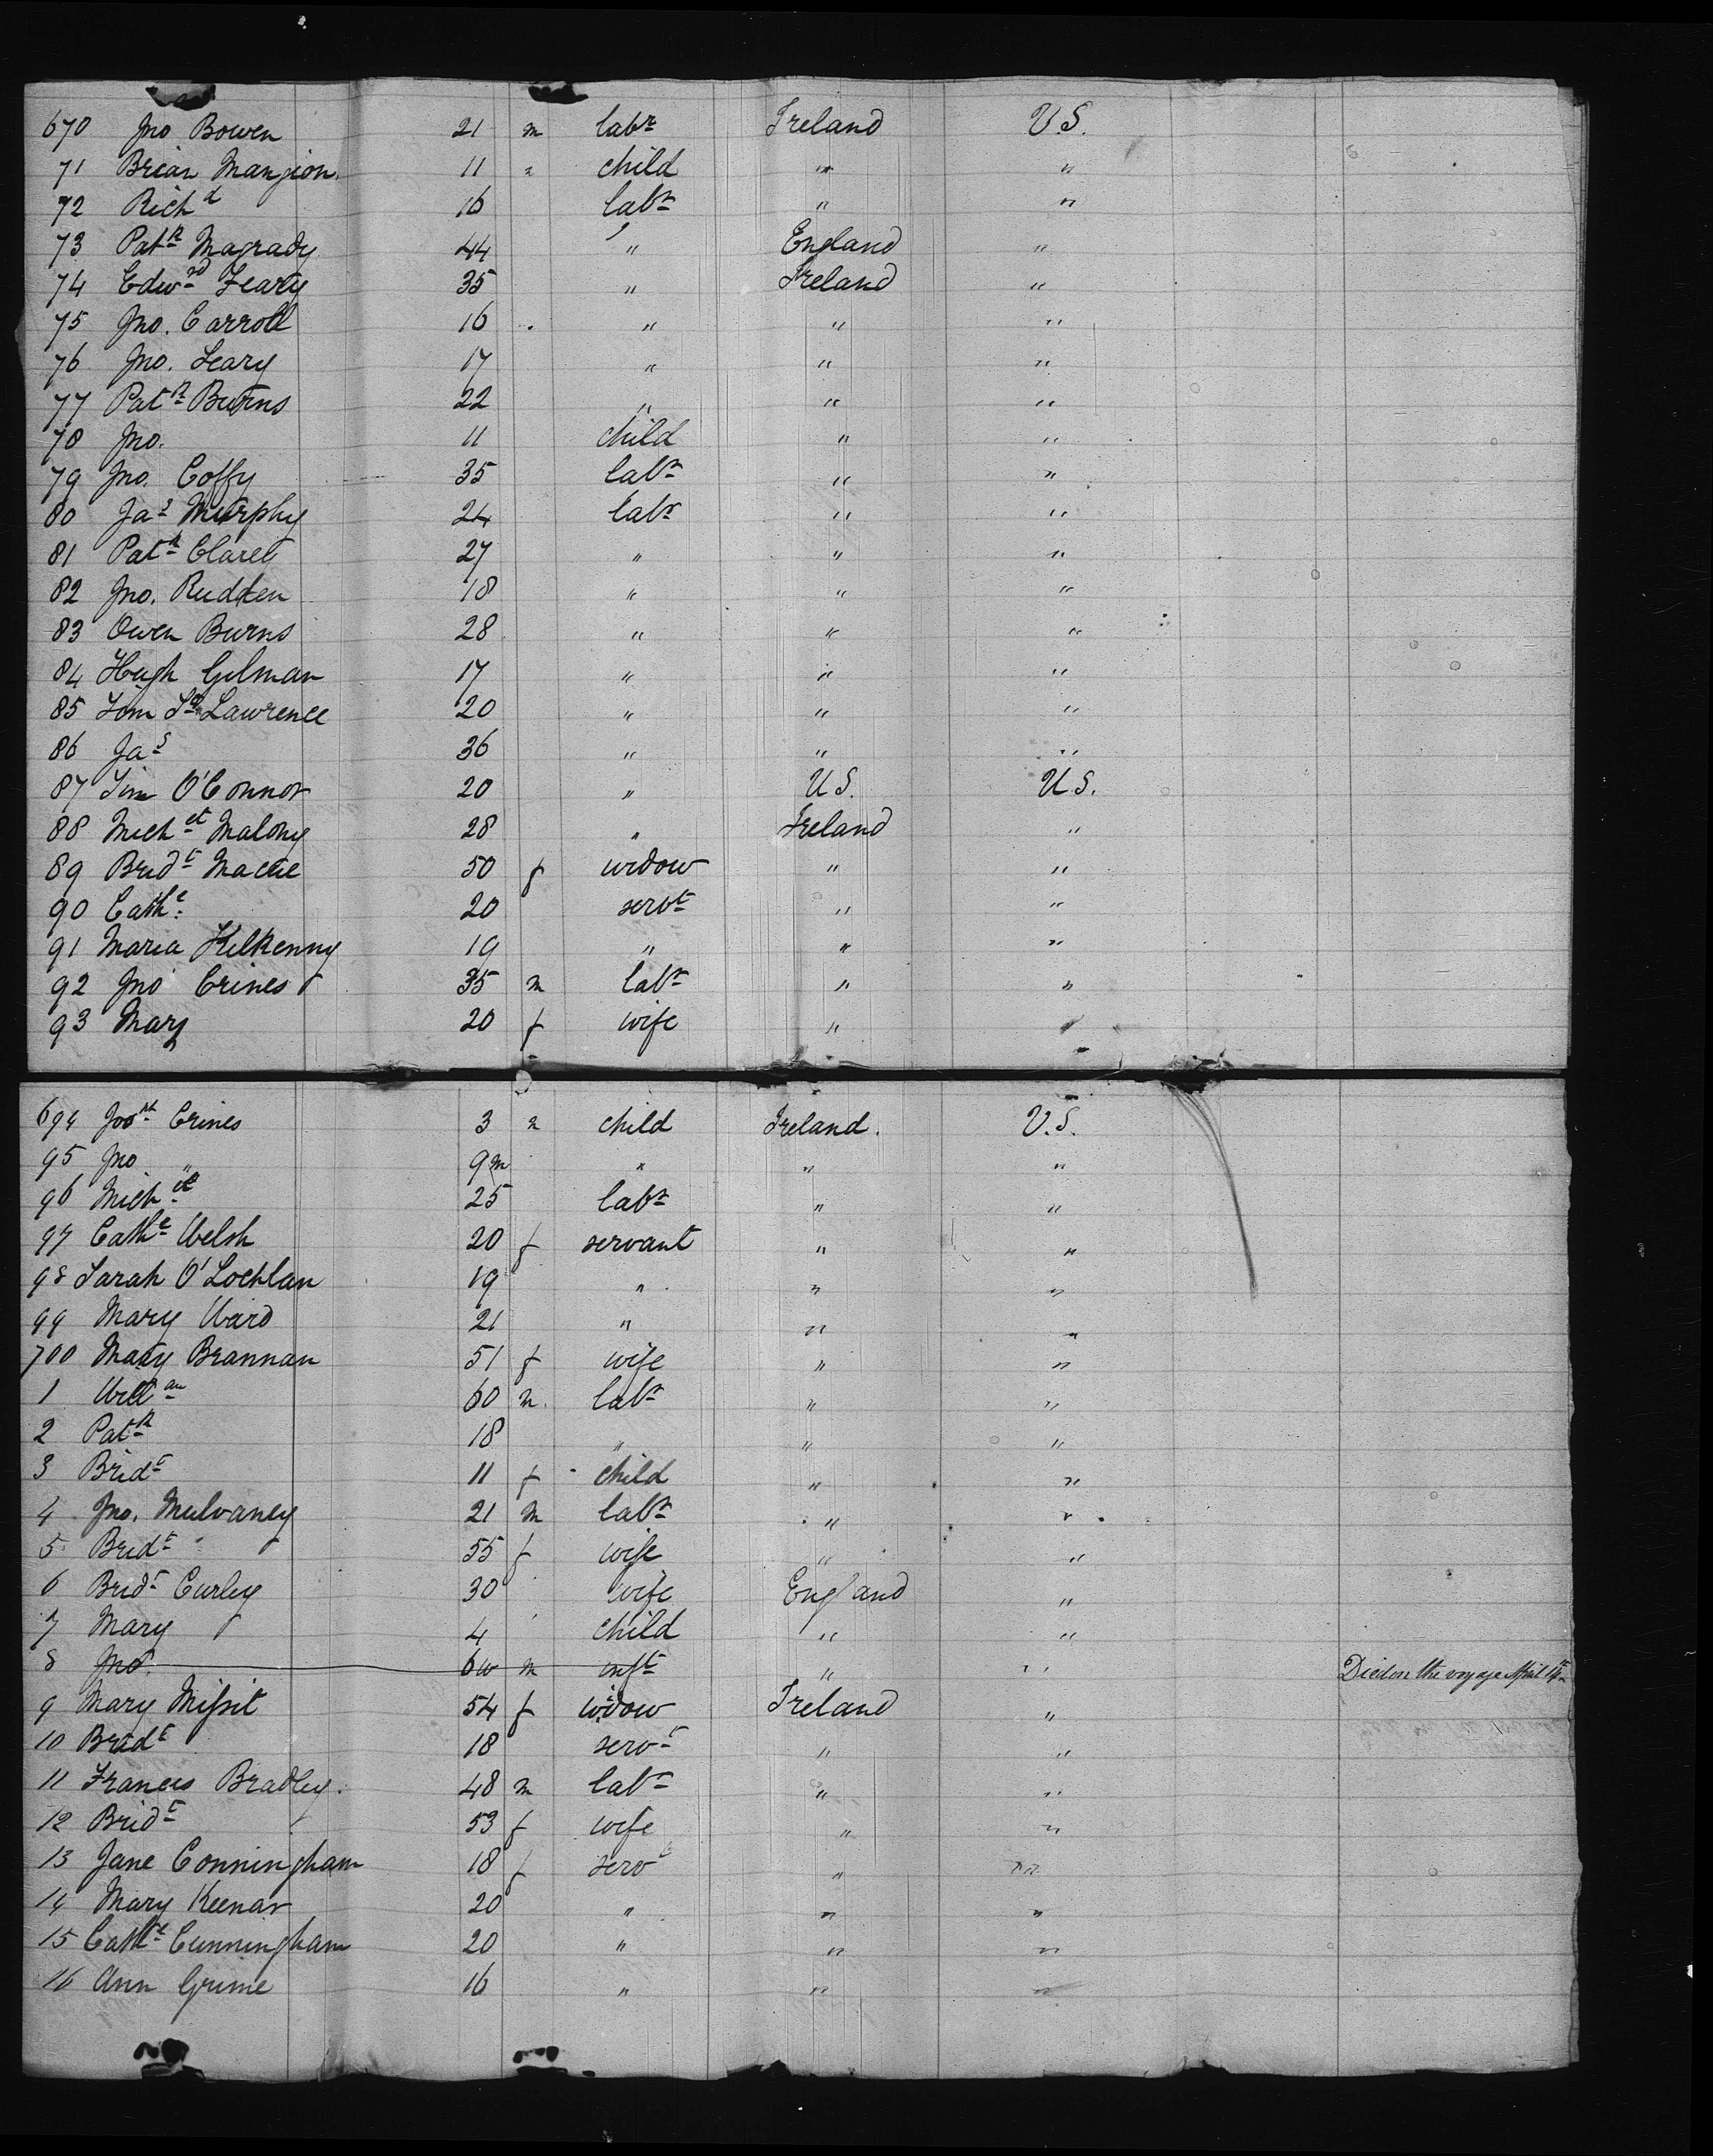 670 Jno Bowen 21 m labr Ireland U.S.
71 Brian Mangion 11 " child " "
72 Richd 16 labr " "
73 Patk Magrady 44 " England "
74 Edwrd Leary 35 " Ireland "
75 Jno. Carroll 16 " " "
76 Jno. Leary 17 " " "
77 Patk Burns 22 " " "
78 Jno. 11 child " "
79 Jno. Coffy 35 labr " "
80 Jas Murphy 24 labr " "
81 Patk Clarey 27 " " "
82 Jno. Rudden 18 " " "
83 Owen Burns 28 " " "
84 Hugh Gilman 17 " " "
85 Tom St Lawrence 20 " " "
86 Jas 36 " " "
87 Tim O'Connor 20 " U.S. U.S.
88 Michel Malony 28 " Ireland "
89 Bridt 50 f widow " "
90 Cathe 20 servt " "
91 Maria Kilkenny 19 " " "
92 Jno Crines 35 m labr " "
93 Mary 20 f wife " "
694 Josh Crines 3 " child Ireland. U.S.
95 Jno " 9m " " "
96 Michel 25 labr " "
97 Cathe Welsh 20 f servant " "
98 Sarah O'Lochlan 19 " " "
99 Mary Ward 21 " " "
700 Mary Brannan 51 f wife " "
1 Willam 60 m. labr " "
2 Patk 18 " " "
3 Bridt 11 f child " "
4 Jno. Mulvaney 21 m labr " "
5 Bridt " 55 f wife " "
6 Bridt Curley 30 wife England "
7 Mary 4 child " "
8 Jno. 6w m inft " " Died on the voyage April 14th
9 Mary Missit 54 f widow Ireland "
10 Bridt 18 servt " "
11 Francis Bradley. 48 m labr " "
12 Bridt 53 f wife " "
13 Jane Conningham 18 f servt " "
14 Mary Keenan 20 " " "
15 Cathe Cunningham 20 " " "
16 Ann Grime 16 " " "